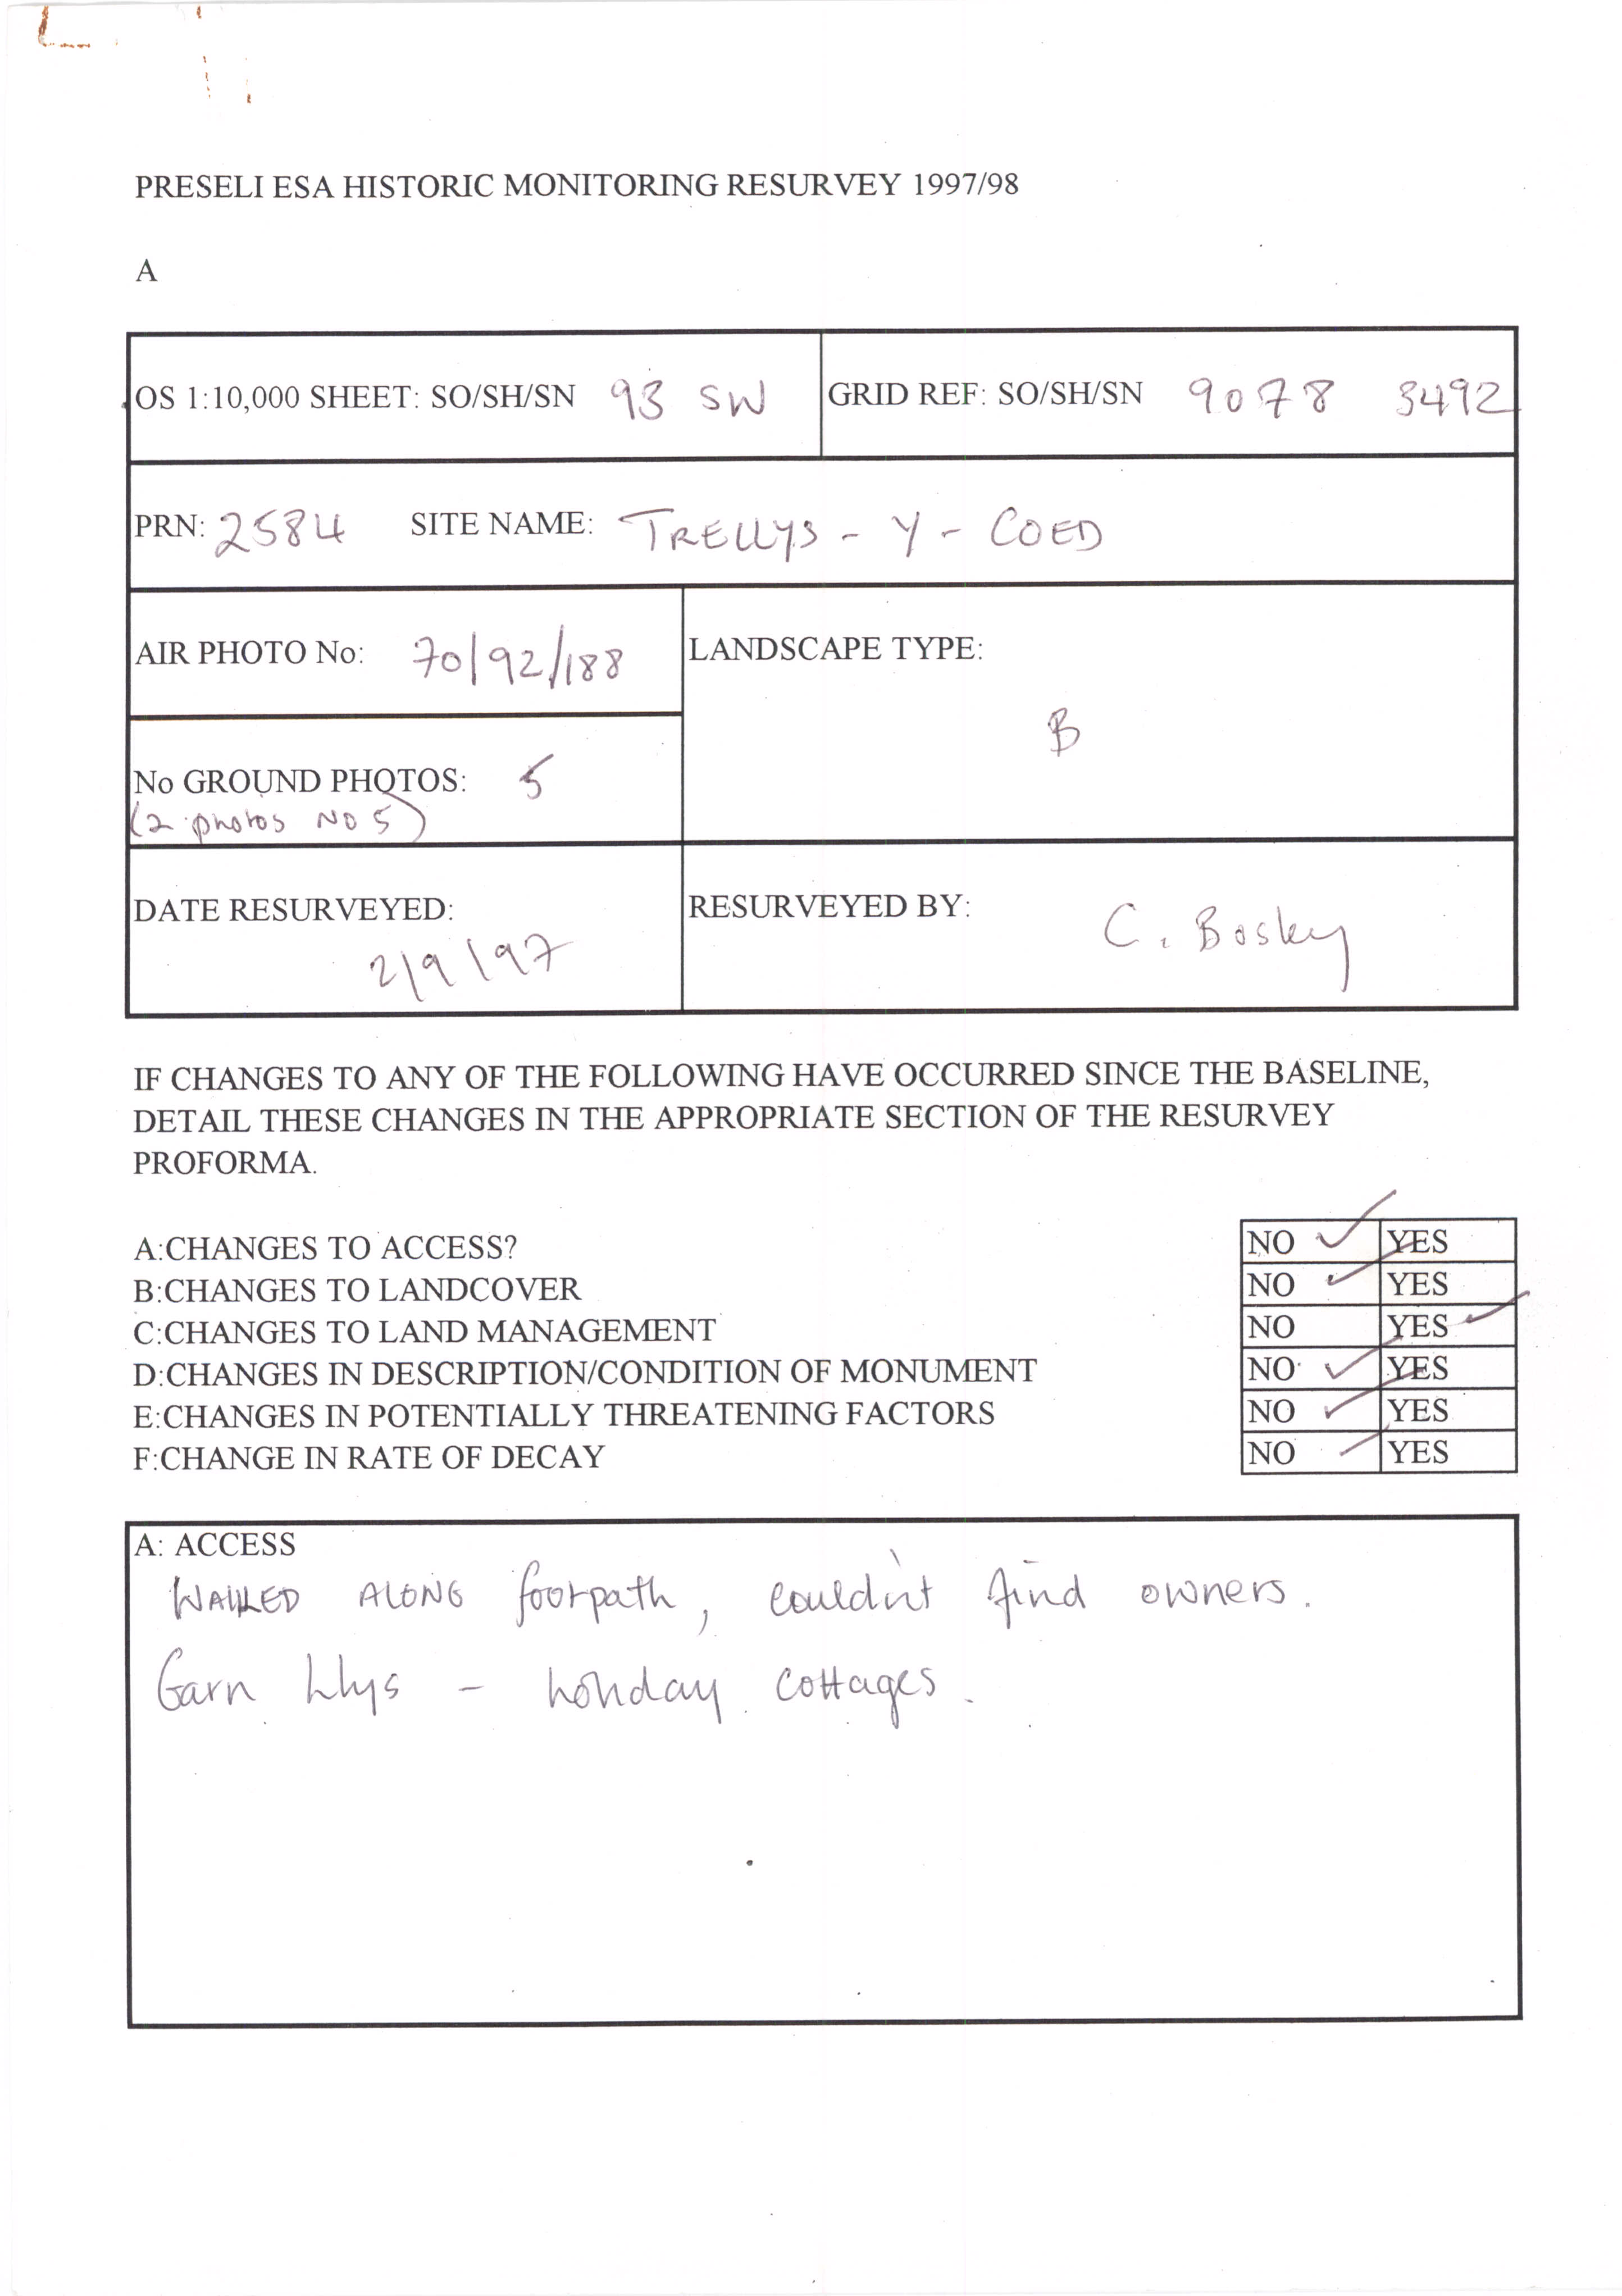 PRESELI ESA HISTORIC MONITORING RESURVEY 1997/98
A
OS 1:10,000 SHEET: SO/SH/SN 93 SW GRID REF: SO/SH/SN 9078 3492
PRN: 2584 SITE NAME: TRELLYS - Y - COED
AIR PHOTO No: 70/92/188 LANDSCAPE TYPE:
B
No GROUND PHOTOS: 5
(2 photos NO 5)
DATE RESURVEYED: RESURVEYED BY: C. Bosley
2/9/97
IF CHANGES TO ANY OF THE FOLLOWING HAVE OCCURRED SINCE THE BASELINE,
DETAIL THESE CHANGES IN THE APPROPRIATE SECTION OF THE RESURVEY
PROFORMA.
A:CHANGES TO ACCESS? NO ✓ YES
B:CHANGES TO LANDCOVER NO ✓ YES
C:CHANGES TO LAND MANAGEMENT NO YES ✓
D:CHANGES IN DESCRIPTION/CONDITION OF MONUMENT NO ✓ YES
E:CHANGES IN POTENTIALLY THREATENING FACTORS NO ✓ YES
F:CHANGE IN RATE OF DECAY NO ✓ YES
A: ACCESS
WALKED ALONG footpath, couldn't find owners.
Garn Llys - holiday cottages.